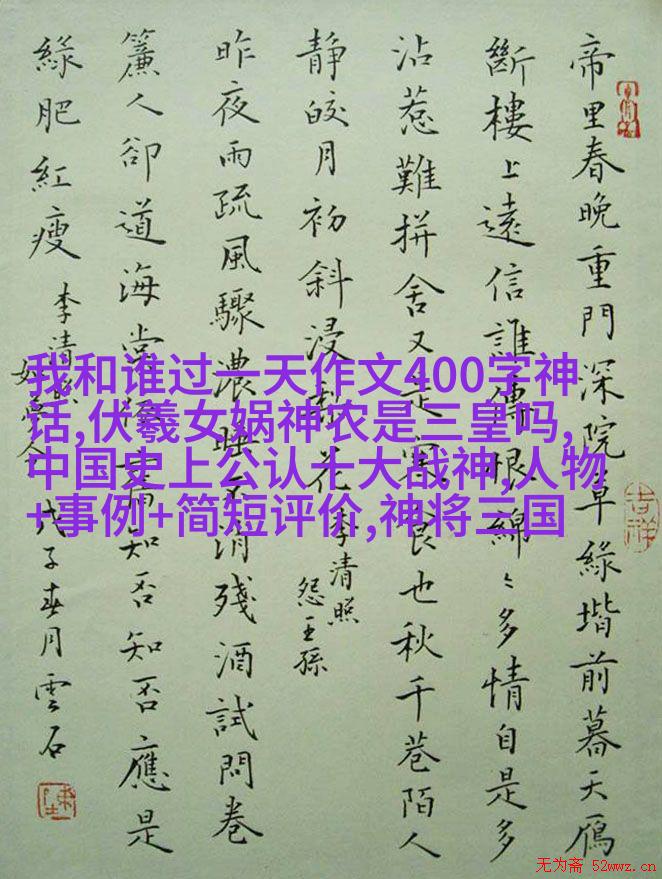 帝里春晚重門深院草緑堦前暮天鴈
斷樓上遠信誰傳恨綿〻多情自是多
沾惹難拼舍又是寒食也秋千巷陌人
静皎月初斜浸梨花
李清照
怨王孫
昨夜雨疏風驟濃睡不消殘酒試問卷
簾人卻道海棠依舊知否知否應是
緑肥紅瘦
李清照
如夢令
戊子春月雲石
吉祥
我和谁过一天作文400字神
话,伏羲女娲神农是三皇吗,
中国史上公认十大战神,人物
+事例+简短评价,神将三国
无为斋 52wwz.cn